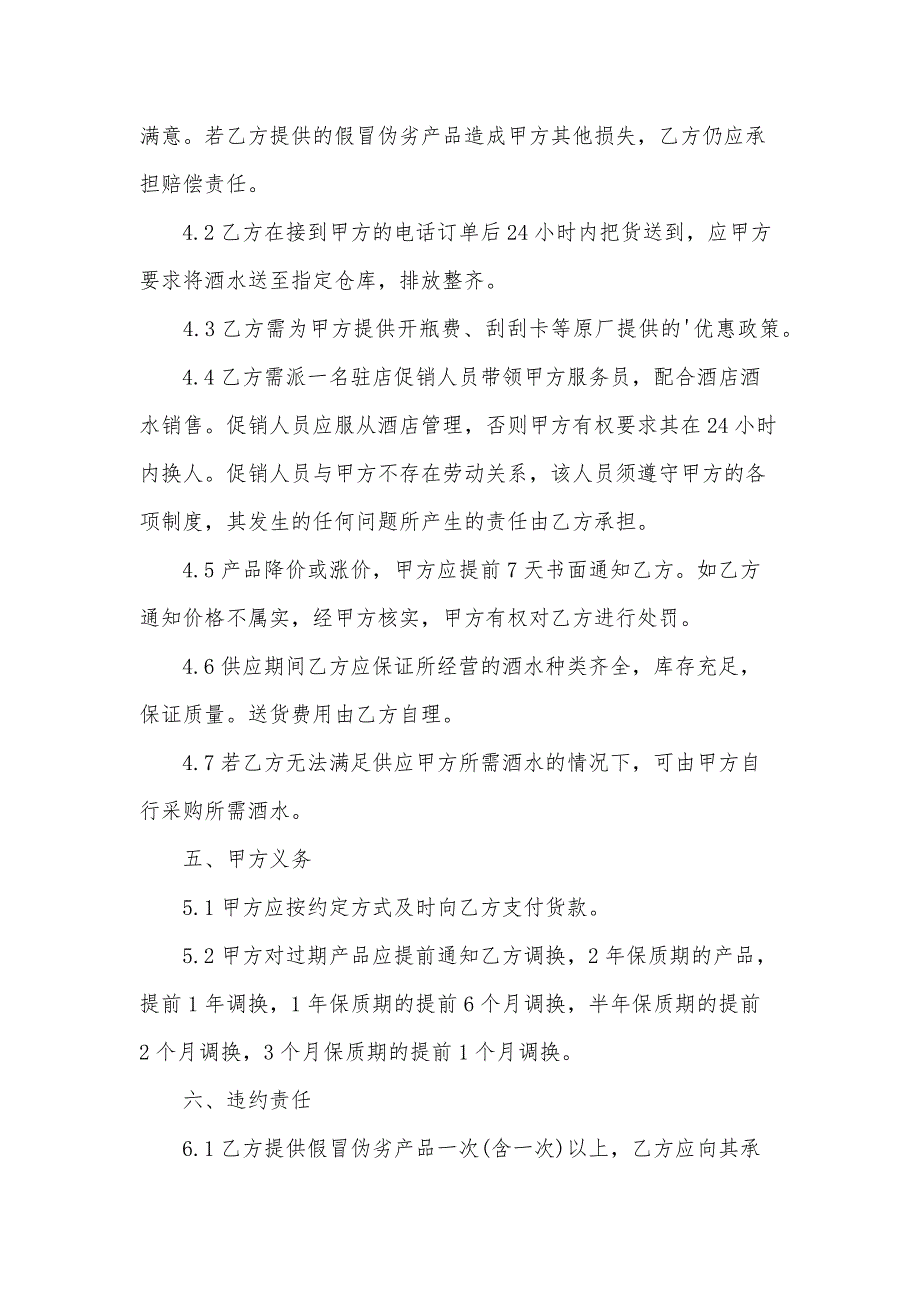 满意。若乙方提供的假冒伪劣产品造成甲方其他损失，乙方仍应承
担赔偿责任。
4.2 乙方在接到甲方的电话订单后 24 小时内把货送到，应甲方
要求将酒水送至指定仓库，排放整齐。
4.3 乙方需为甲方提供开瓶费、刮刮卡等原厂提供的'优惠政策。
4.4 乙方需派一名驻店促销人员带领甲方服务员，配合酒店酒
水销售。促销人员应服从酒店管理，否则甲方有权要求其在 24 小时
内换人。促销人员与甲方不存在劳动关系，该人员须遵守甲方的各
项制度，其发生的任何问题所产生的责任由乙方承担。
4.5 产品降价或涨价，甲方应提前 7 天书面通知乙方。如乙方
通知价格不属实，经甲方核实，甲方有权对乙方进行处罚。
4.6 供应期间乙方应保证所经营的酒水种类齐全，库存充足，
保证质量。送货费用由乙方自理。
4.7 若乙方无法满足供应甲方所需酒水的情况下，可由甲方自
行采购所需酒水。
五、甲方义务
5.1 甲方应按约定方式及时向乙方支付货款。
5.2 甲方对过期产品应提前通知乙方调换，2 年保质期的产品，
提前 1 年调换，1 年保质期的提前 6 个月调换，半年保质期的提前
2 个月调换，3 个月保质期的提前 1 个月调换。
六、违约责任
6.1 乙方提供假冒伪劣产品一次(含一次)以上，乙方应向其承